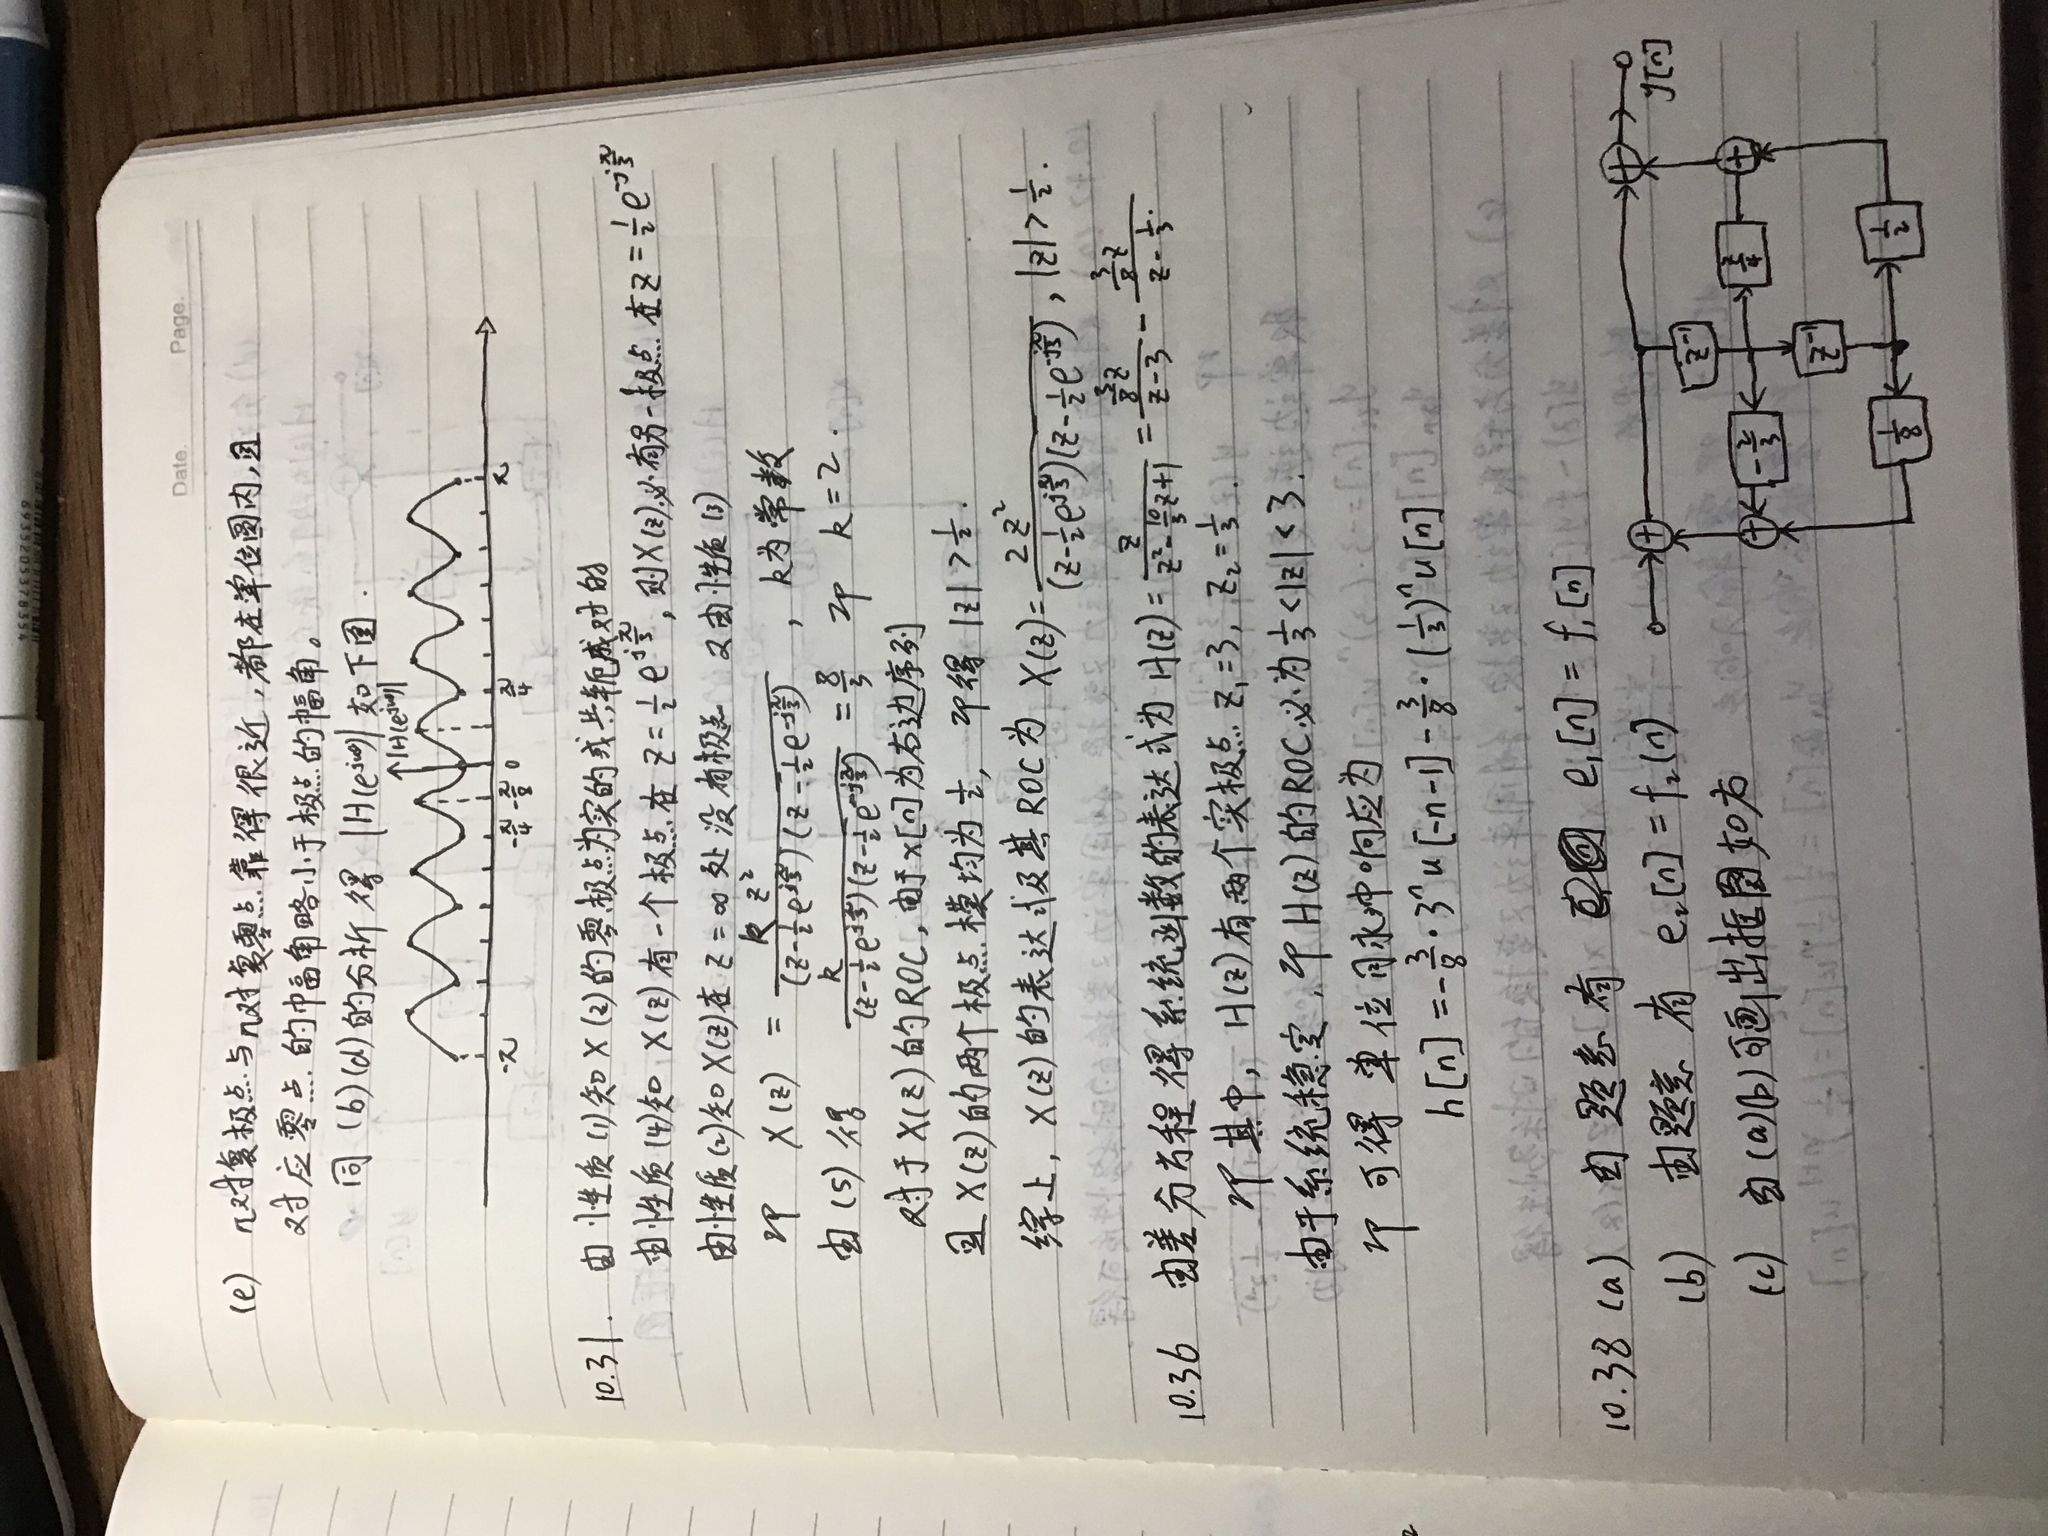 6935205378354
Date. Page.
(e) n对复极点与n对复零点靠得很近,都在单位圆内,且
对应零点的幅角略小于极点的幅角。
同(b)(d)的分析得 |H(e^{jω})| 如下图.
|H(e^{jω})|
-π -π/4 -π/8 0 π/4 π
10.31. 由性质(1)知X(z)的零极点为实的或共轭成对的
由性质(4)知 X(z)有一个极点在 z = 1/2 e^{jπ/3}, 则X(z)必有另一极点在 z = 1/2 e^{-jπ/3}
由性质(2)知X(z)在 z = ∞ 处没有极点 又由性质(3)
即 X(z) = k z² / ((z - 1/2 e^{jπ/3})(z - 1/2 e^{-jπ/3})), k为常数
由(5)得 k / ((z - 1/2 e^{jπ/3})(z - 1/2 e^{-jπ/3})) = 8/3 即 k = 2.
对于X(z)的ROC,由于x[n]为右边序列
且X(z)的两个极点模均为1/2, 即得 |z| > 1/2.
综上, X(z)的表达式及其ROC为 X(z) = 2z² / ((z - 1/2 e^{jπ/3})(z - 1/2 e^{-jπ/3})), |z| > 1/2.
10.36 由差分方程得系统函数的表达式为 H(z) = z / (z² - 10/3 z + 1) = (3/8 z) / (z - 3) - (3/8 z) / (z - 1/3).
即其中, H(z)有两个实极点 z₁ = 3, z₂ = 1/3.
由于系统稳定,即H(z)的ROC必为 1/3 < |z| < 3.
即可得单位脉冲响应为
h[n] = -3/8 · 3ⁿ u[-n-1] - 3/8 · (1/3)ⁿ u[n]
10.38 (a) 由题意有 e₁[n] = f₁[n]
(b) 由题意有 e₂[n] = f₂(n)
(c) 由(a)(b)可画出框图如右
+ + y[n]
z⁻¹
+ -2/3 3/4 +
z⁻¹
1/8 1/2